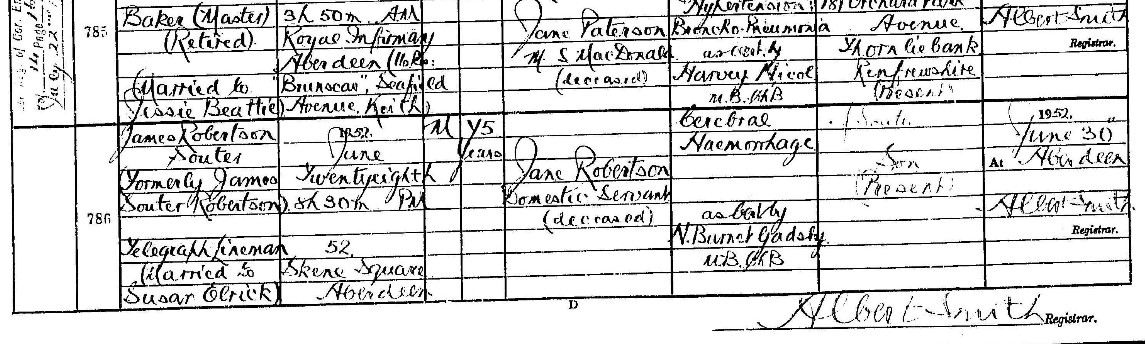 785
Baker (Master)
(Retired).
(Married to
Jessie Beattie)
3h 50m. AM
Royal Infirmary
Aberdeen
"Brunscar", Seafield
Avenue, Keith)
Jane Paterson
M. S MacDonald
(deceased)
Hypertension;
Broncho-Pneumonia
as cert. by
Harvey Nicol
M.B. ChB
181 Orchard Park
Avenue
Thornliebank
Renfrewshire
(Present)
Albert Smith
Registrar.
786
James Robertson
Souter
Formerly James
Souter Robertson)
Telegraph Lineman
(Married to
Susan Elrick)
1952.
June
Twentyeighth
8h 30m PM
52,
Skene Square
Aberdeen
M
75
Years
Jane Robertson
Domestic Servant
(deceased)
Cerebral
Haemorrhage
as cert by
N. Burnet Gadsby.
M.B. ChB
Souter
Son
(Present)
1952.
June 30"
At Aberdeen
Albert Smith
Registrar.
D
Albert Smith
Registrar.